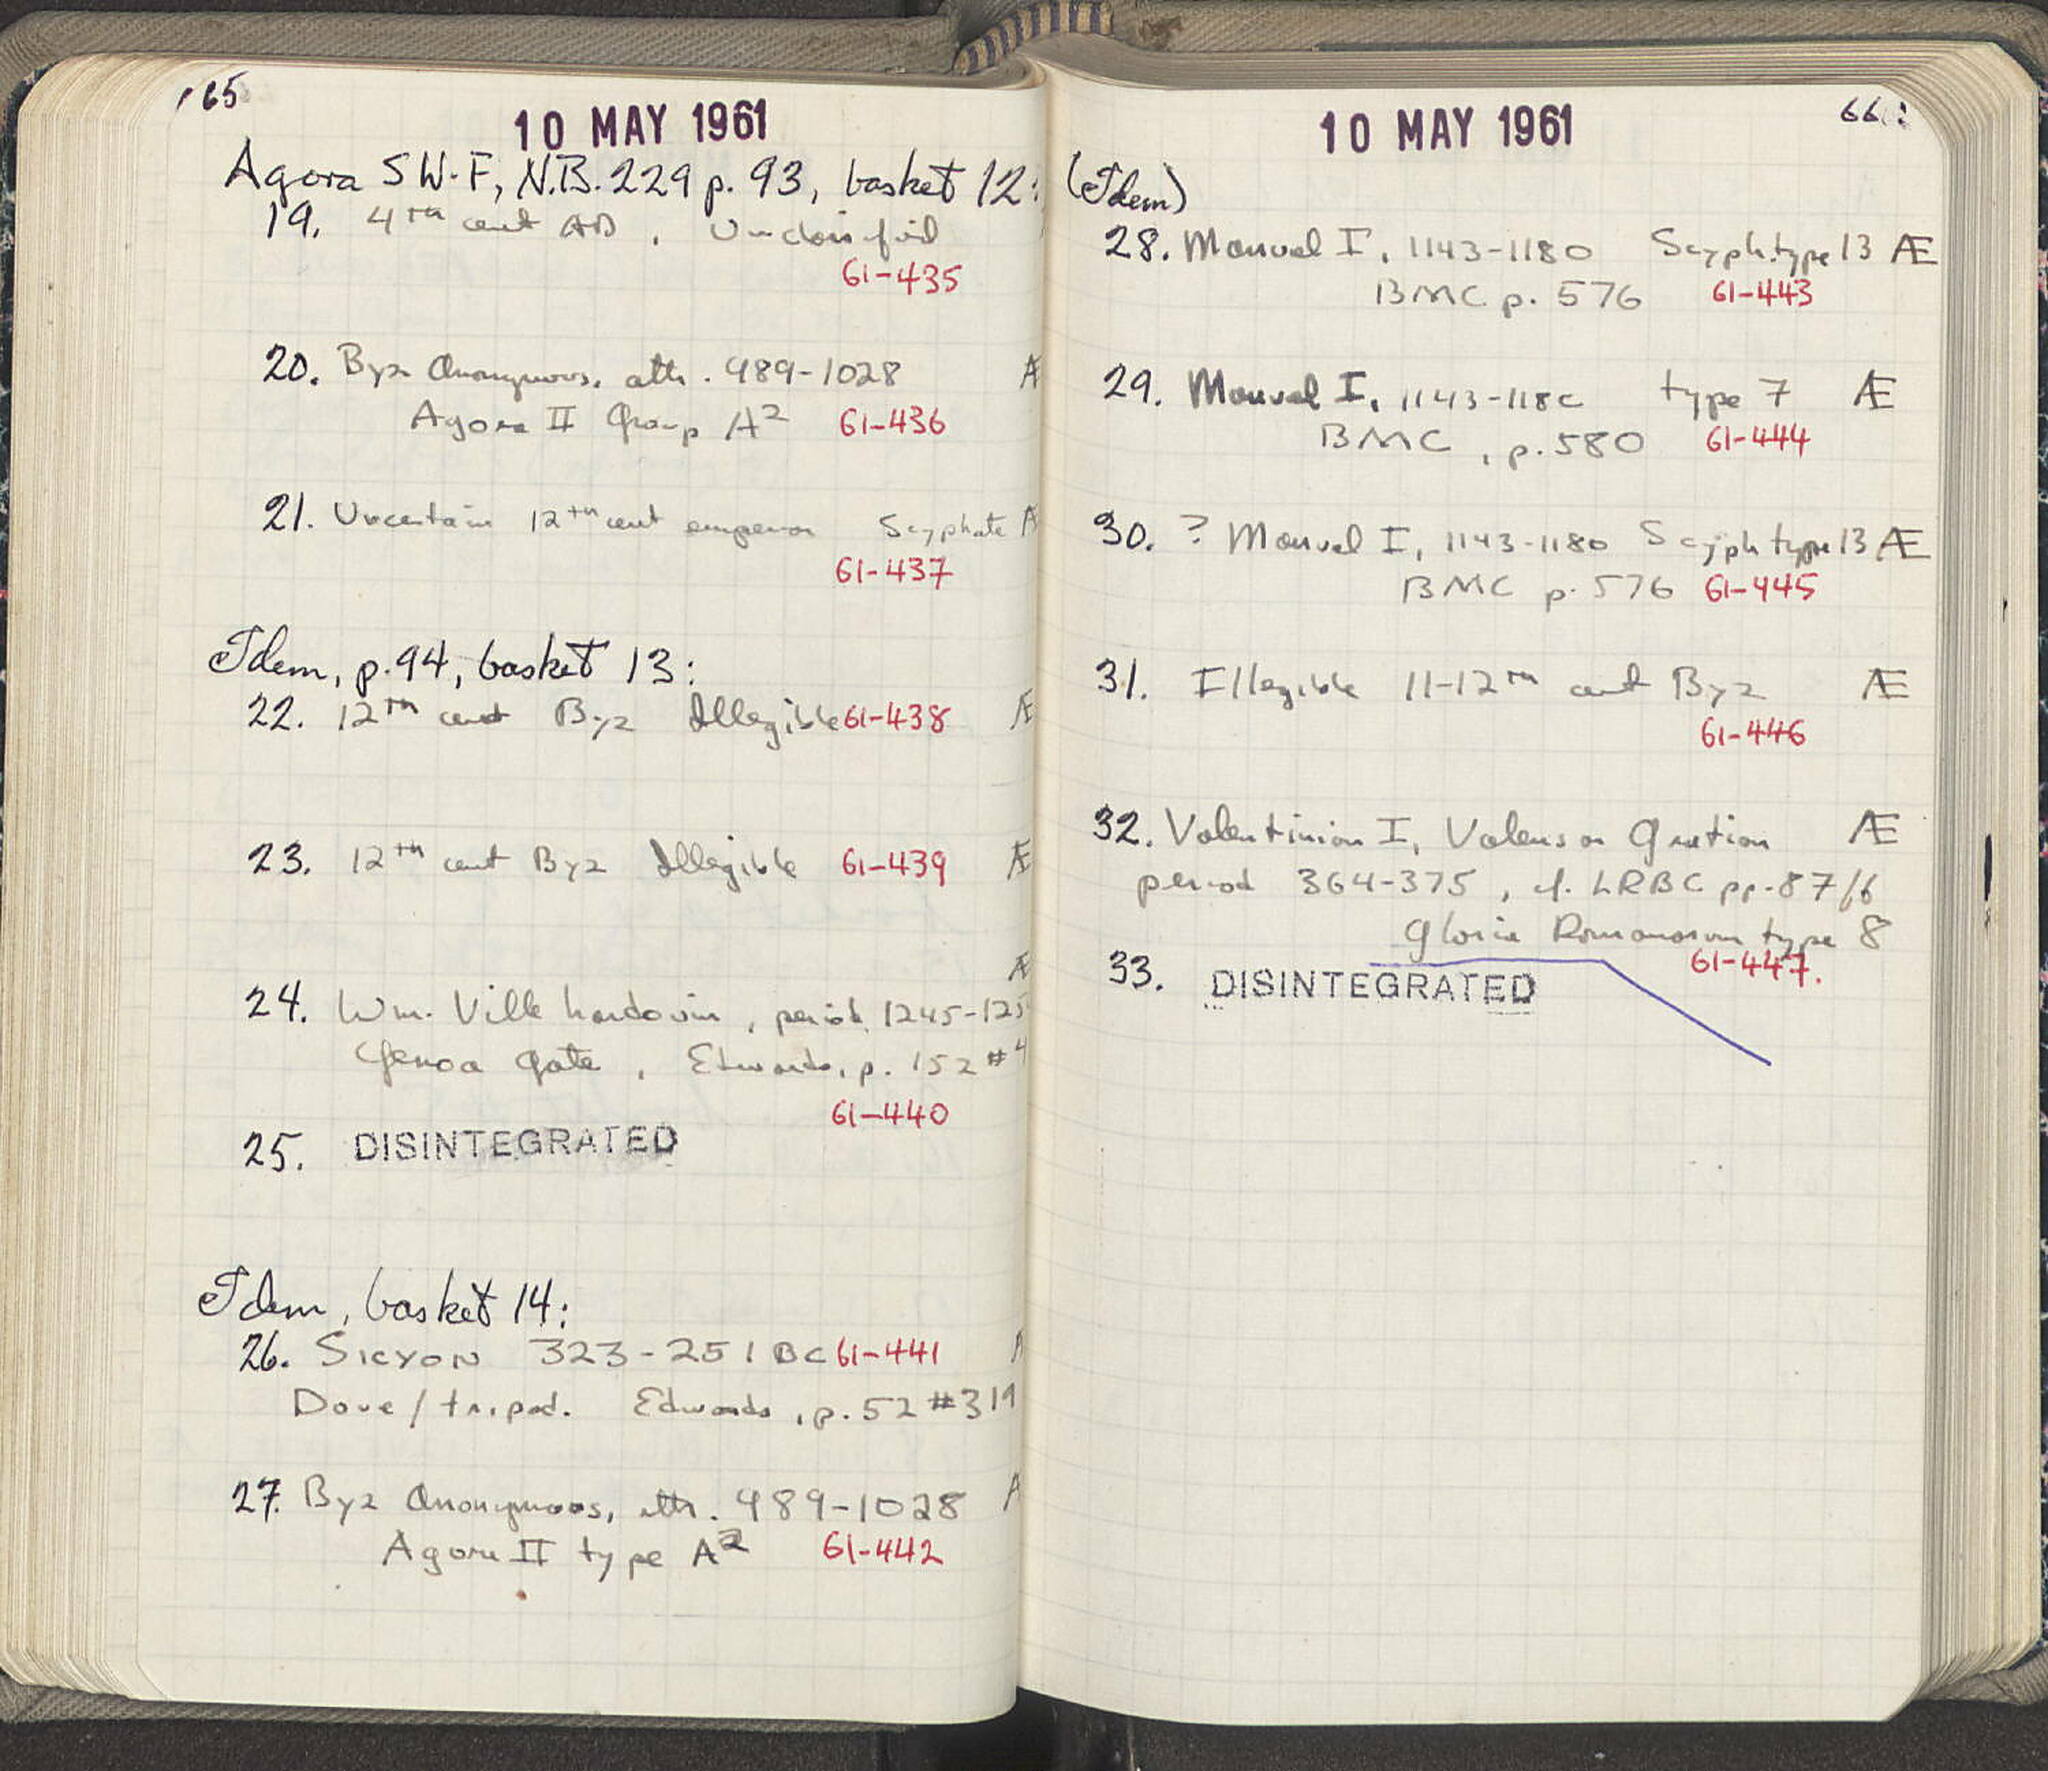 165
10 MAY 1961
Agora SW-F, N.B. 229 p. 93, basket 12:
19. 4th cent AD, Unclassified
61-435
20. Byz Anonymous, attr. 989-1028 Æ
Agora II Group A2 61-436
21. Uncertain 12th cent emperor Scyphate Æ
61-437
Idem, p. 94, basket 13:
22. 12th cent Byz Illegible 61-438 Æ
23. 12th cent Byz Illegible 61-439 Æ
Æ
24. Wm. Villehardouin, period 1245-125
Genoa Gate, Edwards, p. 152 #4
61-440
25. DISINTEGRATED
Idem, basket 14:
26. SICYON 323-251 BC 61-441
Dove/tripod. Edwards, p. 52 #319
27. Byz Anonymous, attr. 989-1028
Agora II type A2 61-442
66
10 MAY 1961
(Idem)
28. Manuel I, 1143-1180 Scyph. type 13 Æ
BMC p. 576 61-443
29. Manuel I, 1143-1180 type 7 Æ
BMC, p. 580 61-444
30. ? Manuel I, 1143-1180 Scyph type 13 Æ
BMC p. 576 61-445
31. Illegible 11-12th cent Byz Æ
61-446
32. Valentinian I, Valens or Gratian Æ
period 364-375, cf. LRBC pp. 87/6
Gloria Romanorum type 8
61-447.
33. DISINTEGRATED